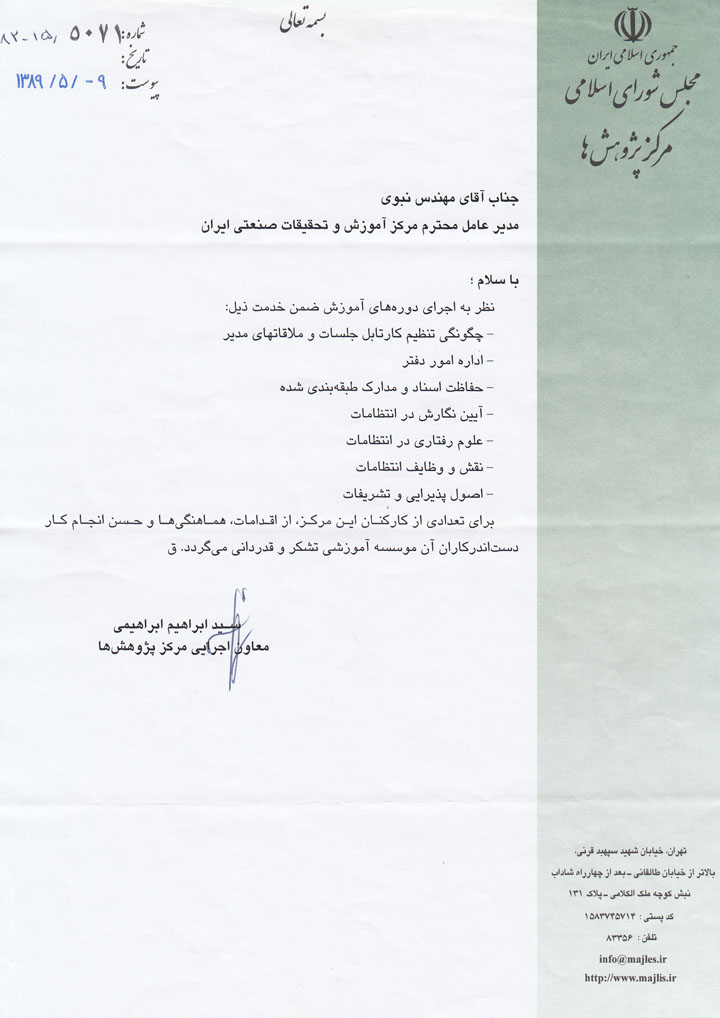 بسمه تعالی
شماره: ۵۰۷۱ /۱۵-۸۲
تاریخ:
پیوست: ۱۳۸۹/۵/-۹
جمهوری اسلامی ایران
مجلس شورای اسلامی
مرکز پژوهش ها
جناب آقای مهندس نبوی
مدیر عامل محترم مرکز آموزش و تحقیقات صنعتی ایران
با سلام ؛
نظر به اجرای دوره‌های آموزش ضمن خدمت ذیل:
- چگونگی تنظیم کارتابل جلسات و ملاقاتهای مدیر
- اداره امور دفتر
- حفاظت اسناد و مدارک طبقه‌بندی شده
- آیین نگارش در انتظامات
- علوم رفتاری در انتظامات
- نقش و وظایف انتظامات
- اصول پذیرایی و تشریفات
برای تعدادی از کارکنان این مرکز، از اقدامات، هماهنگی‌ها و حسن انجام کار
دست‌اندرکاران آن موسسه آموزشی تشکر و قدردانی می‌گردد. ق
سید ابراهیم ابراهیمی
معاون اجرایی مرکز پژوهش‌ها
تهران، خیابان شهید سپهبد قرنی،
بالاتر از خیابان طالقانی - بعد از چهارراه شاداب
نبش کوچه ملک الکلامی - پلاک ۱۳۱
کد پستی : ۱۵۸۳۷۴۵۷۱۴
تلفن : ۸۳۳۵۶
info@majles.ir
http://www.majlis.ir